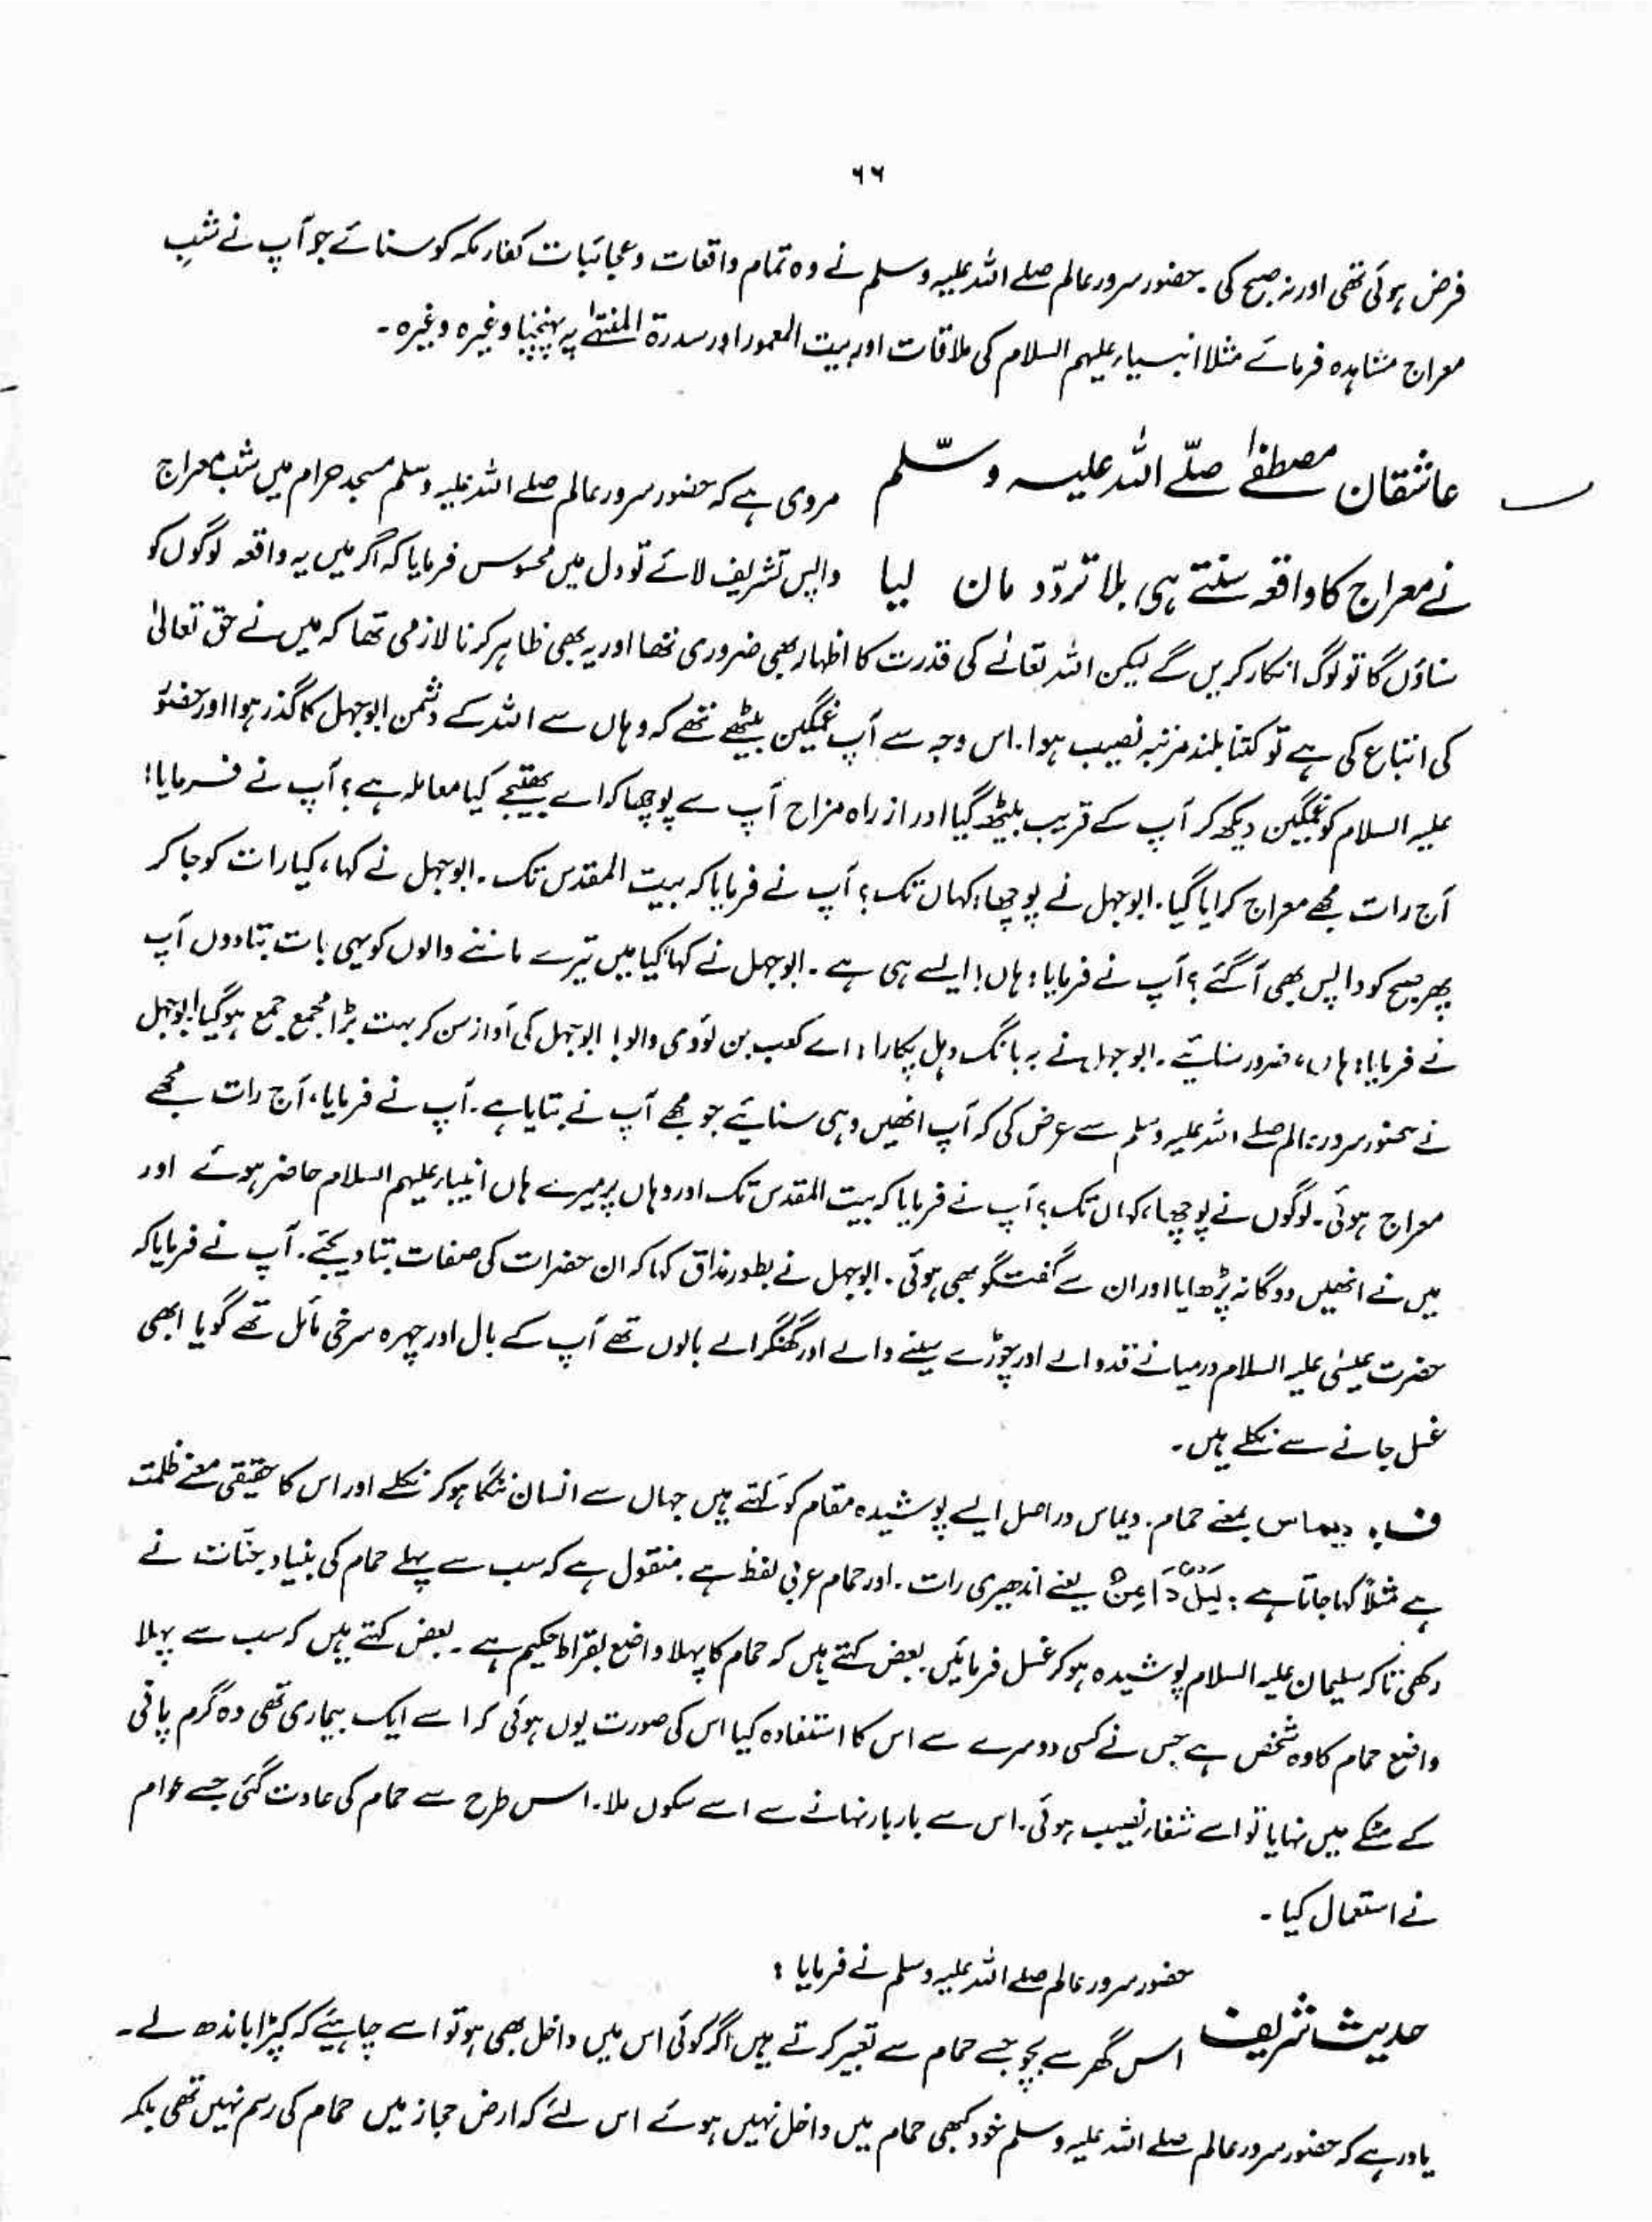 ۶۶
فرض ہوئی تھی اور نہ صبح کی۔ حضور سرور عالم صلے اللہ علیہ وسلم نے وہ تمام واقعات و عجائبات کفار مکہ کو سنائے جو آپ نے شبِ
معراج مشاہدہ فرمائے مثلا انبیاء علیہم السلام کی ملاقات اور بیت المعمور اور سدرۃ المنتہٰے پہ پہنچنا وغیرہ وغیرہ۔
عاشقان مصطفےٰ صلّے اللہ علیہ وسلّم مروی ہے کہ حضور سرور عالم صلے اللہ علیہ وسلم مسجد حرام میں شب معراج
نے معراج کا واقعہ سنتے ہی بلا تردّد مان لیا واپس تشریف لائے تو دل میں محسوس فرمایا کہ اگر میں یہ واقعہ لوگوں کو
سناؤں گا تو لوگ انکار کریں گے لیکن اللہ تعالےٰ کی قدرت کا اظہار بھی ضروری تھا اور یہ بھی ظاہر کرنا لازمی تھا کہ میں نے حق تعالیٰ
کی اتباع کی ہے تو کتنا بلند مرتبہ نصیب ہوا۔ اس وجہ سے آپ غمگین بیٹھے تھے کہ وہاں سے اللہ کے دشمن ابوجہل کا گذر ہوا اور حضور
علیہ السلام کو غمگین دیکھ کر آپ کے قریب بیٹھ گیا اور از راہ مزاح آپ سے پوچھا کہ اے بھتیجے کیا معاملہ ہے؟ آپ نے فرمایا:
آج رات مجھے معراج کرایا گیا۔ ابوجہل نے پوچھا، کہاں تک؟ آپ نے فرمایا کہ بیت المقدس تک۔ ابوجہل نے کہا، کیا رات کو جا کر
پھر صبح کو واپس بھی آگئے؟ آپ نے فرمایا: ہاں! ایسے ہی ہے۔ ابوجہل نے کہا کیا میں تیرے ماننے والوں کو یہی بات بتا دوں آپ
نے فرمایا: ہاں، ضرور سنائیے۔ ابوجہل نے بہ بانگ دہل پکارا: اے کعب بن لوءدی والو! ابوجہل کی آواز سن کر بہت بڑا مجمع جمع ہوگیا ابوجہل
نے حضور سرور عالم صلے اللہ علیہ وسلم سے عرض کی کہ آپ انھیں وہی سنائیے جو مجھے آپ نے بتایا ہے۔ آپ نے فرمایا، آج رات مجھے
معراج ہوئی۔ لوگوں نے پوچھا، کہاں تک؟ آپ نے فرمایا کہ بیت المقدس تک اور وہاں پر میرے ہاں انبیاء علیہم السلام حاضر ہوئے اور
میں نے انھیں دوگانہ پڑھایا اور ان سے گفتگو بھی ہوئی۔ ابوجہل نے بطور مذاق کہا کہ ان حضرات کی صفات بتا دیجئے۔ آپ نے فرمایا کہ
حضرت عیسٰی علیہ السلام درمیانے قد والے اور چوڑے سینے والے اور گھنگرالے بالوں تھے آپ کے بال اور چہرہ سرخی مائل تھے گویا ابھی
غسل جانے سے نکلے ہیں۔
ف: دیماس بمعنے حمام۔ دیماس دراصل ایسے پوشیدہ مقام کو کہتے ہیں جہاں سے انسان ننگا ہو کر نکلے اور اس کا حقیقی معنے ظلمت
ہے مثلاً کہا جاتا ہے: لَيْلٌ دَامِسٌ یعنے اندھیری رات۔ اور حمام عربی لفظ ہے۔ منقول ہے کہ سب سے پہلے حمام کی بنیاد جنّات نے
رکھی تاکہ سلیمان علیہ السلام پوشیدہ ہو کر غسل فرمائیں۔ بعض کہتے ہیں کہ حمام کا پہلا واضع بقراط حکیم ہے۔ بعض کہتے ہیں کہ سب سے پہلا
واضع حمام کا وہ شخص ہے جس نے کسی دوسرے سے اس کا استفادہ کیا اس کی صورت یوں ہوئی کہ اسے ایک بیماری تھی وہ گرم پانی
کے مٹکے میں نہایا تو اسے شفاء نصیب ہوئی۔ اس سے بار بار نہانے سے اسے سکون ملا۔ اس طرح سے حمام کی عادت گئی جسے عوام
نے استعمال کیا۔
حضور سرور عالم صلے اللہ علیہ وسلم نے فرمایا:
حدیث شریف اس گھر سے بچو جسے حمام سے تعبیر کرتے ہیں اگر کوئی اس میں داخل بھی ہو تو اسے چاہیئے کہ کپڑا باندھ لے۔
یاد رہے کہ حضور سرور عالم صلے اللہ علیہ وسلم خود کبھی حمام میں داخل نہیں ہوئے اس لئے کہ ارض حجاز میں حمام کی رسم نہیں تھی بلکہ